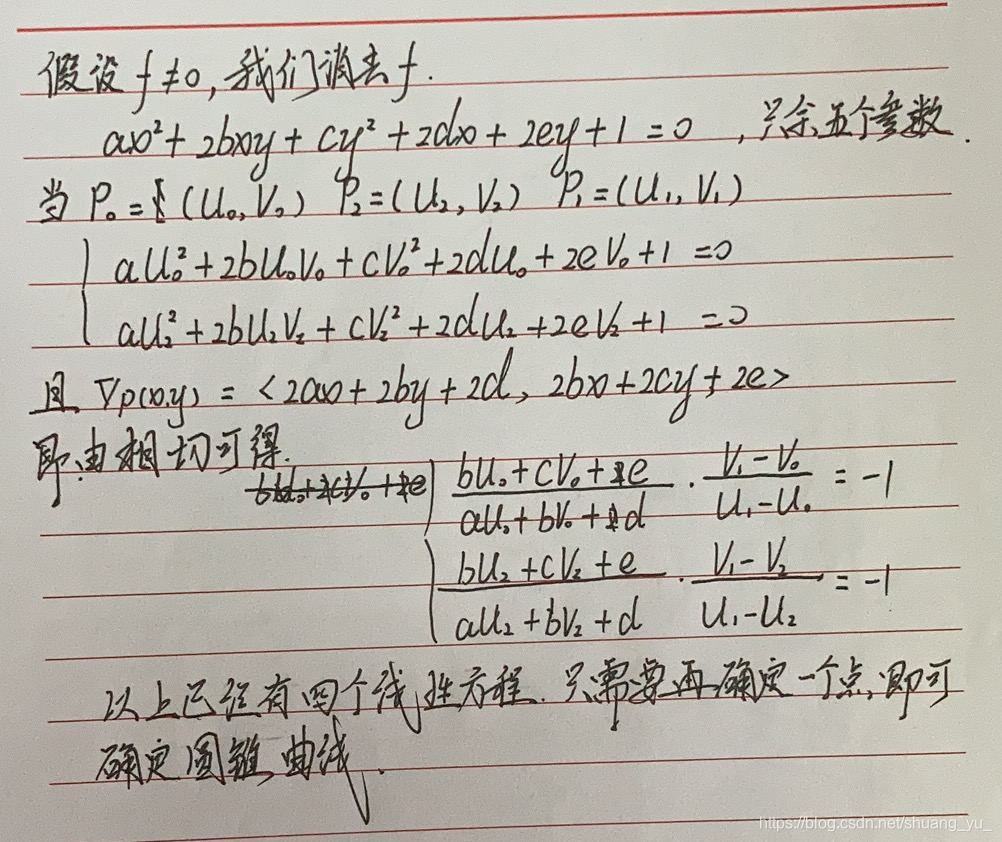 假设 f≠0, 我们消去 f.
ax²+2bxy+cy²+2dx+2ey+1=0 ,只余五个参数.
当 P₀=(U₀,V₀) P₂=(U₂,V₂) P₁=(U₁,V₁)
aU₀²+2bU₀V₀+cV₀²+2dU₀+2eV₀+1=0
aU₂²+2bU₂V₂+cV₂²+2dU₂+2eV₂+1=0
且 ∇p(x,y)=<2ax+2by+2d, 2bx+2cy+2e>
即:由相切可得.
(bU₀+cV₀+e)/(aU₀+bV₀+d)·(V₁-V₀)/(U₁-U₀)=-1
(bU₂+cV₂+e)/(aU₂+bV₂+d)·(V₁-V₂)/(U₁-U₂)=-1
以上已经有四个线性方程.只需要再确定一个点,即可
确定圆锥曲线.
https://blog.csdn.net/shuang_yu_